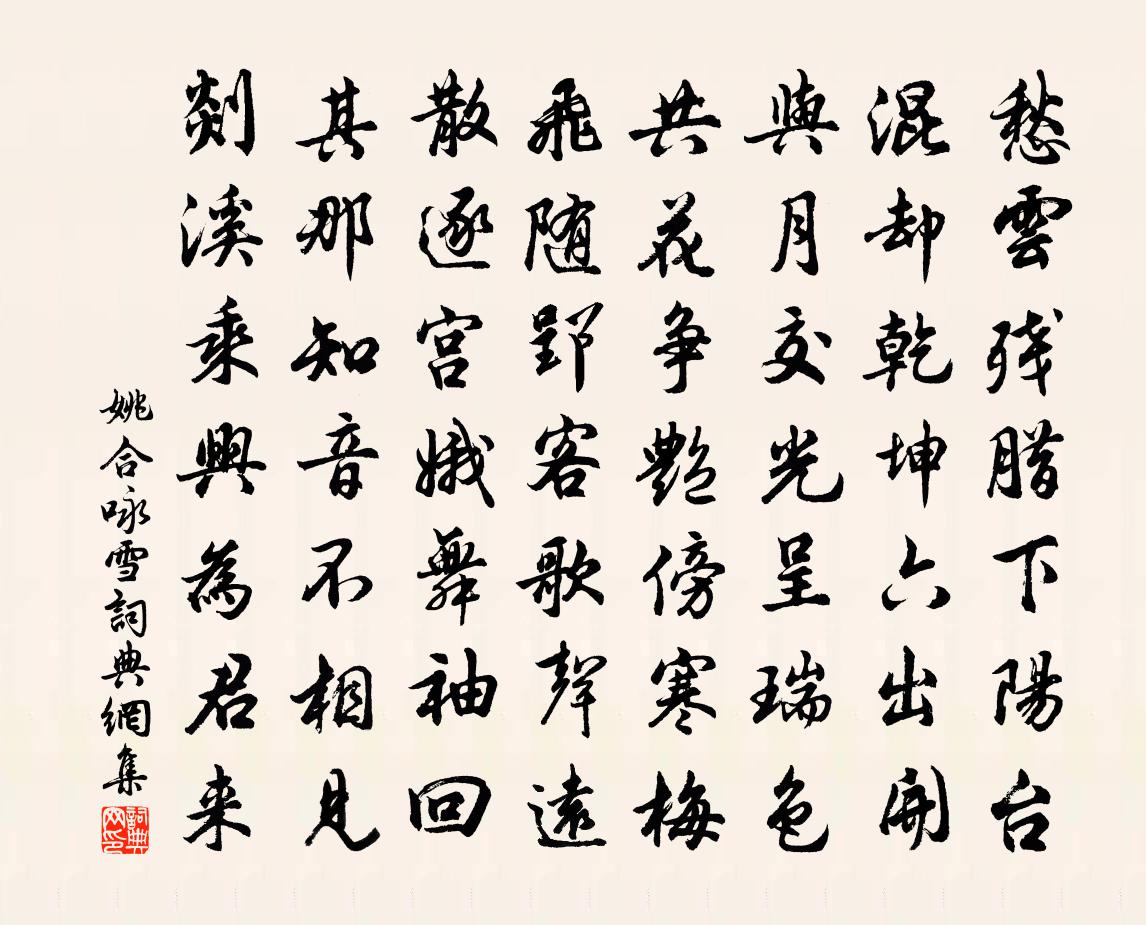 愁雲残腊下陽台
混却乾坤六出開
與月交光呈瑞色
共花争艷傍寒梅
飛随郢客歌聲遠
散逐宫娥舞袖回
其那知音不相見
剡溪乘興為君来
姚合咏雪詞典網集
詞典网印